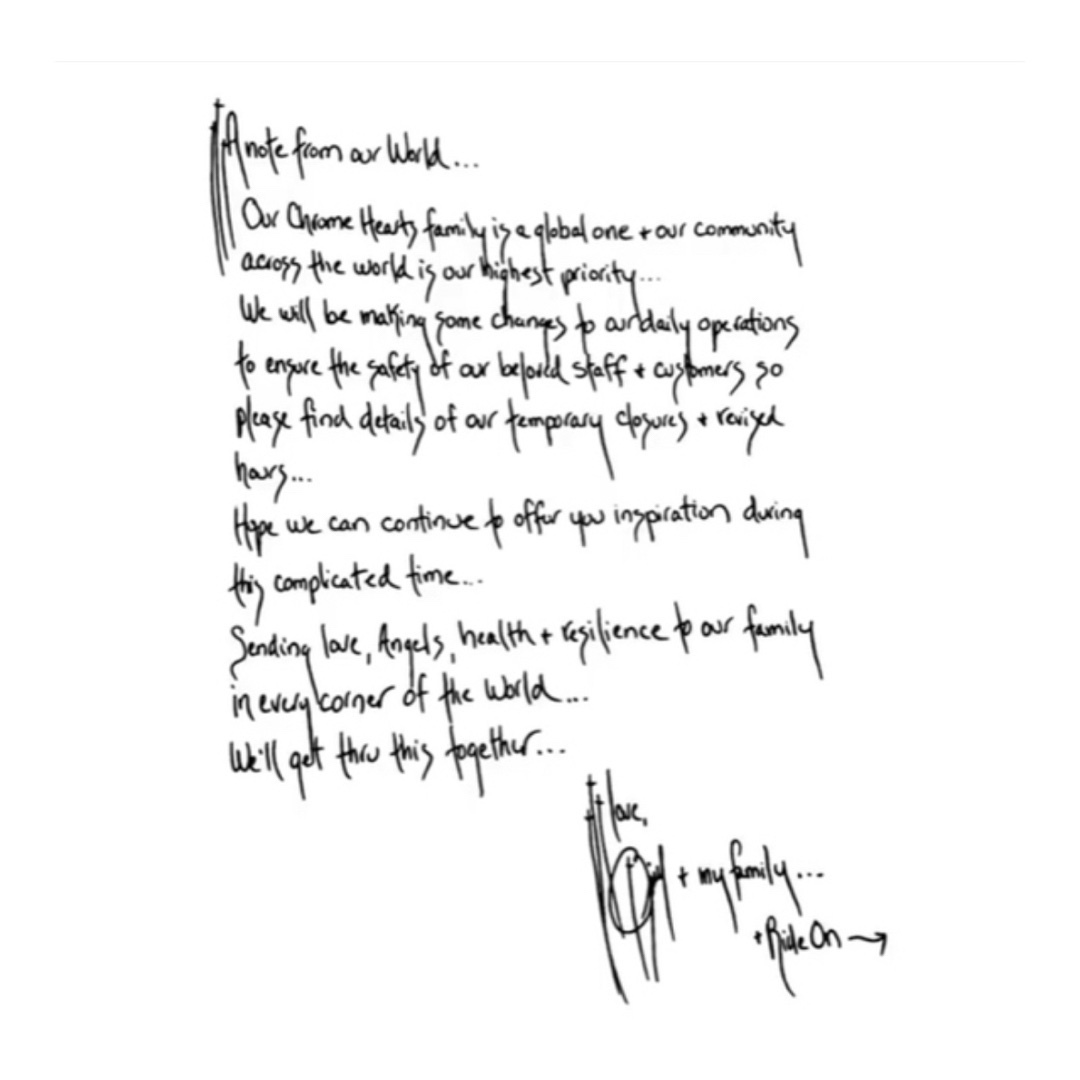 A note from our World...
Our Chrome Hearts family is a global one + our community
across the world is our highest priority...
We will be making some changes to our daily operations
to ensure the safety of our beloved staff + customers so
please find details of our temporary closures + revised
hours...
Hope we can continue to offer you inspiration during
this complicated time...
Sending love, Angels, health + resilience to our family
in every corner of the World...
We'll get thru this together...
love,
+ my family...
+ Ride On →